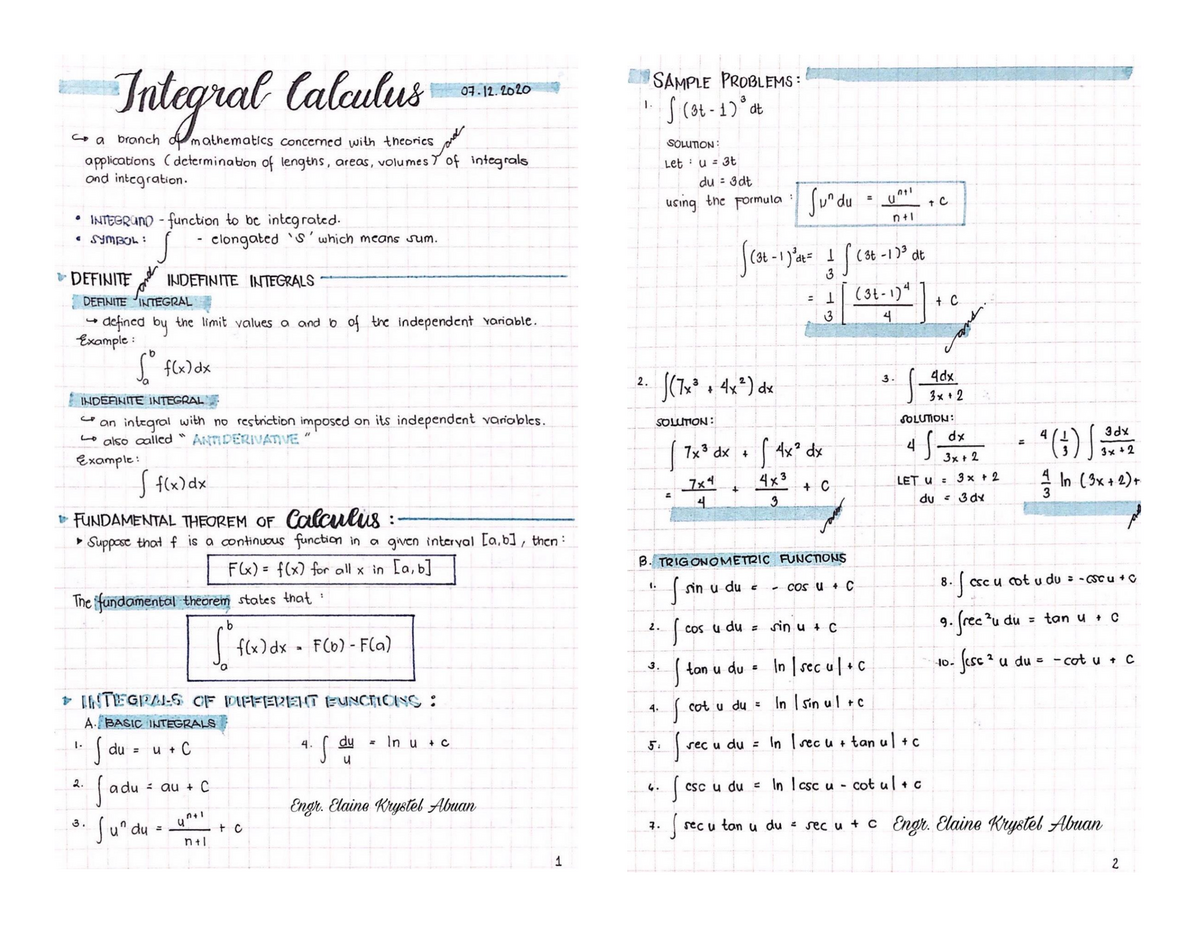 Integral Calculus 07.12.2020
↪ a branch of mathematics concerned with theories and
applications (determination of lengths, areas, volumes) of integrals
and integration.
• INTEGRAND - function to be integrated.
• SYMBOL: ∫ - elongated 'S' which means sum.
DEFINITE and INDEFINITE INTEGRALS
DEFINITE INTEGRAL
↪ defined by the limit values a and b of the independent variable.
Example:
∫_a^b f(x)dx
INDEFINITE INTEGRAL
↪ an integral with no restriction imposed on its independent variables.
↪ also called "ANTIDERIVATIVE"
Example:
∫ f(x)dx
FUNDAMENTAL THEOREM OF Calculus:
▸ Suppose that f is a continuous function in a given interval [a,b], then:
F(x) = f(x) for all x in [a,b]
The fundamental theorem states that:
∫_a^b f(x)dx = F(b) - F(a)
INTEGRALS OF DIFFERENT FUNCTIONS:
A. BASIC INTEGRALS
1. ∫ du = u + C
2. ∫ a du = au + C
3. ∫ u^n du = u^(n+1)/(n+1) + C
4. ∫ du/u = ln u + c
Engr. Elaine Krystel Abuan
1
SAMPLE PROBLEMS:
1. ∫ (3t - 1)^3 dt
SOLUTION:
Let: u = 3t
du = 3dt
using the formula: ∫ u^n du = u^(n+1)/(n+1) + C
∫(3t - 1)^3 dt = 1/3 ∫ (3t - 1)^3 dt
= 1/3 [ (3t-1)^4 / 4 ] + C
ans.
2. ∫(7x^3 + 4x^2) dx
SOLUTION:
∫ 7x^3 dx + ∫ 4x^2 dx
= 7x^4/4 + 4x^3/3 + C
ans
3. ∫ 4dx/(3x + 2)
SOLUTION:
4 ∫ dx/(3x + 2) = 4 (1/3) ∫ 3dx/(3x + 2)
LET u = 3x + 2
du = 3dx
4/3 ln (3x + 2) +
B. TRIGONOMETRIC FUNCTIONS
1. ∫ sin u du = - cos u + C
2. ∫ cos u du = sin u + C
3. ∫ tan u du = ln |sec u| + C
4. ∫ cot u du = ln |sin u| + C
5. ∫ sec u du = ln |sec u + tan u| + C
6. ∫ csc u du = ln |csc u - cot u| + C
7. ∫ sec u tan u du = sec u + C
8. ∫ csc u cot u du = -csc u + C
9. ∫ sec^2 u du = tan u + C
10. ∫ csc^2 u du = -cot u + C
Engr. Elaine Krystel Abuan
2